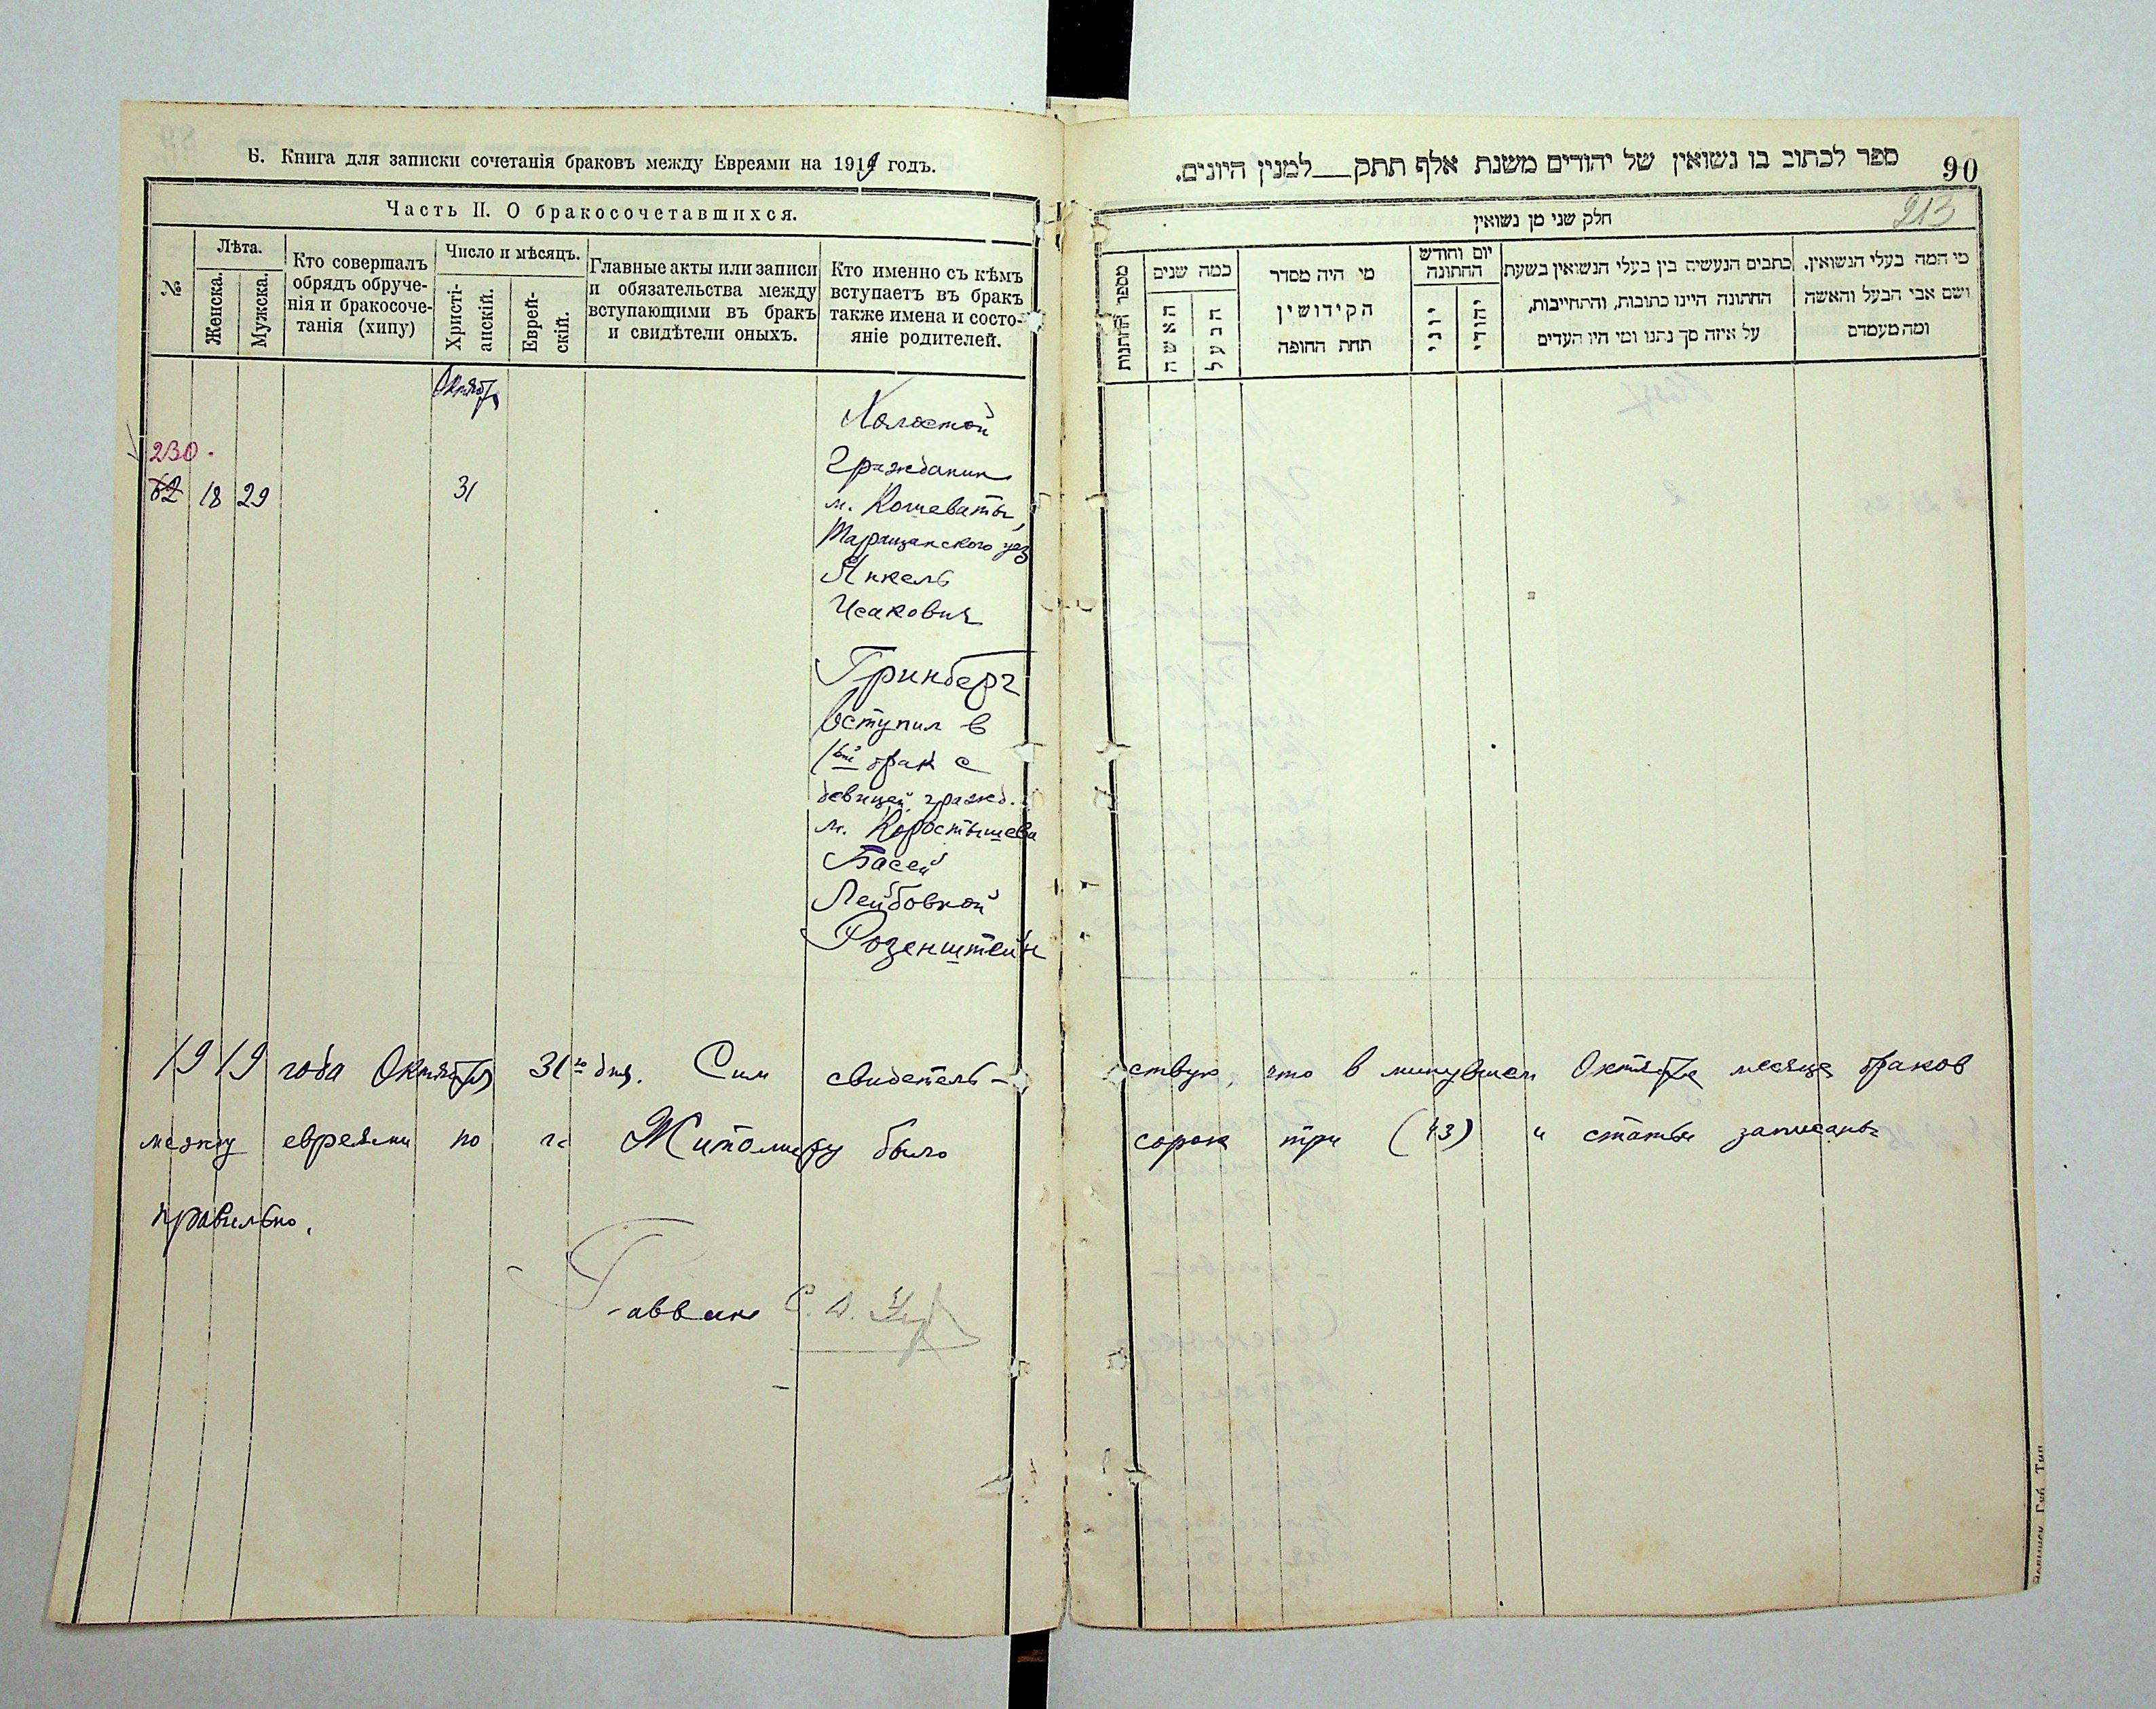 Б. Книга для записки сочетанія браковъ между Евреями на 1919 годъ.
Часть II. О бракосочетавшихся.
№
Лѣта.
Женска.
Мужска.
Кто совершалъ
обрядъ обруче-
нія и бракосоче-
танія (хипу)
Число и мѣсяцъ.
Христі-
анскій.
Еврей-
скій.
Главные акты или записи
и обязательства между
вступающими въ бракъ
и свидѣтели оныхъ.
Кто именно съ кѣмъ
вступаетъ въ бракъ
также имена и состо-
яніе родителей.
Октября
230.
62 18 29 31
Холостой
Гражданин
м. Кошеваты,
Таращанского уез
Янкель
Исакович
Гринберг
вступил в
1ый брак с
девицей гражд.
м. Коростышева
Басей
Лейбовной
Розенштейн
ספר לכתוב בו נשואין של יהודים משנת אלף תתק__למנין היונים.
90
213
חלק שני מן נשואין
מספר החתנות
כמה שנים
האשה
הבעל
מי היה מסדר
הקידושין
תחת החופה
יום וחודש
החתונה
יוני
יהודי
כתבים הנעשים בין בעלי הנשואין בשעת
החתונה היינו כתובות, והתחייבות,
על איזה סך נתנו ומי היו העדים
מי המה בעלי הנשואין,
ושם אבי הבעל והאשה
ומה מעמדם
1919 года Октября 31го дня. Сим свидетель-ствую, что в минувшем Октябре месяце браков
между евреями по гг Житомиру было сорок три (43) и статьи записаны
правильно.
Раввин С.